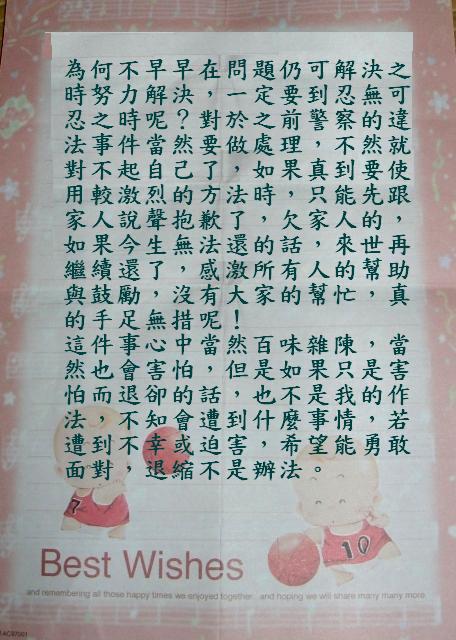 為何不早早在問題仍可解決之
時努力解決，一定要到忍無可
忍之時呢？對於之前警察的違
法事件當然要做處理，不然就
對不起自己了，如果真到要使
用較激烈的方法時，只能先跟
家人說聲抱歉了，欠家人的，
如果今生無法還的話，來世再
繼續還了，感激所有人的幫助
與鼓勵，沒有大家的幫忙，真
的手足無措呢！
這件事心中當然百味雜陳，當
然也會害怕，但是如果只是害
怕而退卻的話，也不是我的作
法，不知會遭到什麼事情，若
遭到不幸或迫害，希望能勇敢
面對，退縮不是辦法。
7
10
Best Wishes
and remembering all those happy times we enjoyed together and hoping we will share many many more